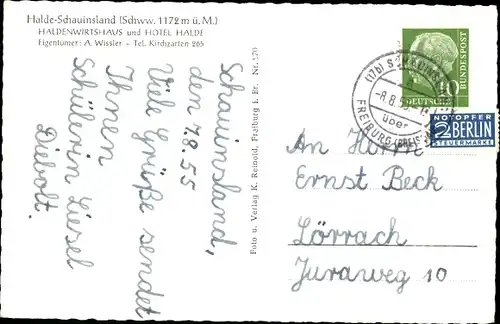 Halde-Schauinsland (Schww. 1172 m ü. M.)
HALDENWIRTSHAUS und HOTEL HALDE
Eigentümer: A. Wissler - Tel. Kirchzarten 265
Schauinsland,
den 7.8.55
Viele Grüße sendet
Ihnen
Schülerin Liesel
Diebolt.
Foto u. Verlag K. Remold, Freiburg i. Br. Nr. 570
(17b) SCHAUINSLAND
-8.8.55
über
FREIBURG (BREISGAU)
DEUTSCHE
BUNDESPOST
10
NOTOPFER
2 BERLIN
STEUERMARKE
An Herrn
Ernst Beck
Lörrach
Juraweg 10